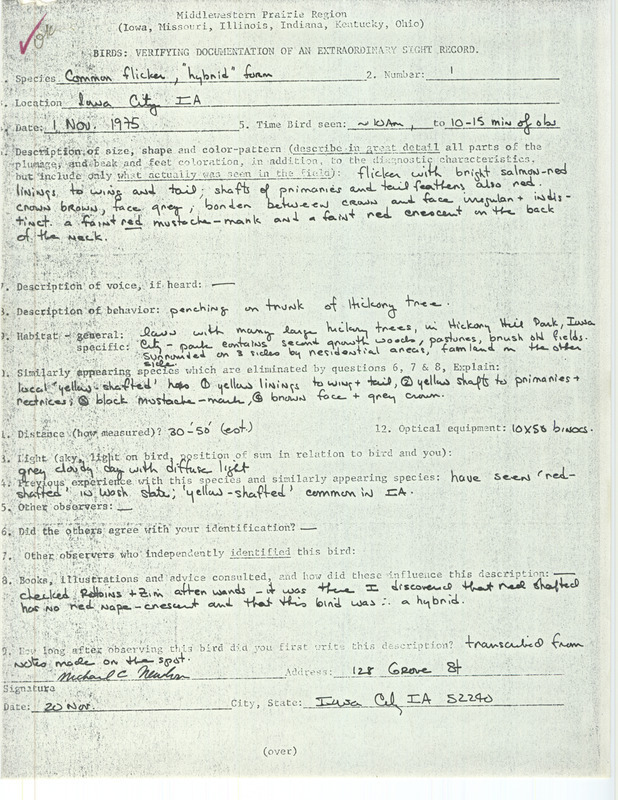 OK
Middlewestern Prairie Region
(Iowa, Missouri, Illinois, Indiana, Kentucky, Ohio)
BIRDS: VERIFYING DOCUMENTATION OF AN EXTRAORDINARY SIGHT RECORD.
. Species Common flicker, "hybrid" form 2. Number: 1
. Location Iowa City IA
. Date: 1 Nov. 1975 5. Time Bird seen: ~10Am, to 10-15 min of obs
. Description of size, shape and color-pattern (describe in great detail all parts of the
plumage, and beak and feet coloration, in addition, to the diagnostic characteristics,
but include only what actually was seen in the field): flicker with bright salmon-red
linings to wing and tail; shafts of primaries and tail feathers also red.
crown brown, face grey; border between crown and face irregular + indis-
tinct. a faint red mustache-mark and a faint red crescent on the back
of the neck.
7. Description of voice, if heard: —
8. Description of behavior: perching on trunk of Hickory tree.
9. Habitat - general: lawn with many large hickory trees, in Hickory Hill Park, Iowa
specific: City - park contains second growth woods, pastures, brush old fields.
surrounded on 3 sides by residential areas, farmland on the other
side.
0. Similarly appearing species which are eliminated by questions 6, 7 & 8, Explain:
local 'yellow-shafted' has ① yellow linings to wing + tail, ② yellow shafts to primaries +
rectrices; ③ black mustache-mark, ④ brown face + grey crown.
1. Distance (how measured)? 30'-50' (est.) 12. Optical equipment: 10x50 binocs.
3. Light (sky, light on bird, position of sun in relation to bird and you):
grey cloudy day with diffuse light
4. Previous experience with this species and similarly appearing species: have seen 'red-
shafted' in Wash state; 'yellow-shafted' common in IA.
5. Other observers: —
6. Did the others agree with your identification? —
7. Other observers who independently identified this bird:
8. Books, illustrations and advice consulted, and how did these influence this description: —
checked Robbins + Zim afterwards - it was there I discovered that red shafted
has no red nape-crescent and that this bird was ∴ a hybrid.
9. How long after observing this bird did you first write this description? transcribed from
notes made on the spot.
Michael C. Newlon Address: 128 Grove St
Signature
Date: 20 Nov. City, State: Iowa City IA 52240
(over)